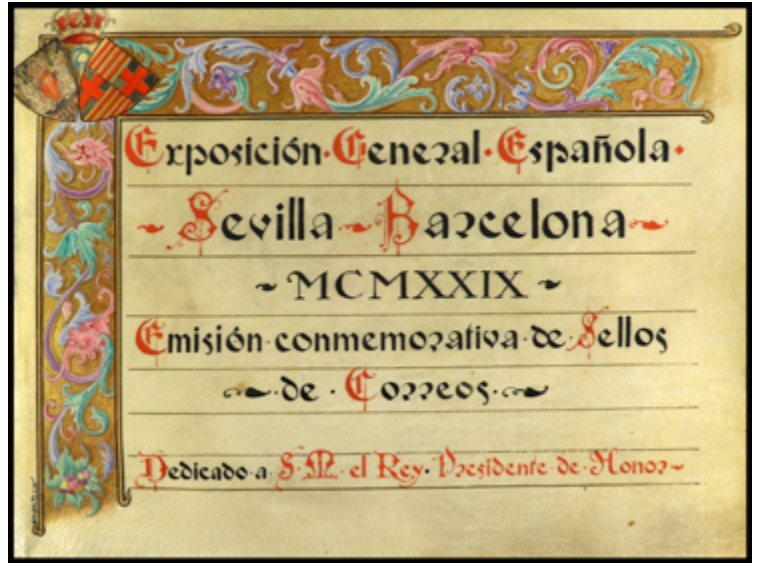 Exposición·General·Española·
~Sevilla~Barcelona~
~MCMXXIX~
Emisión·conmemorativa·de·Sellos
~·de·Correos·~
Dedicado·a·S·M·el Rey·Presidente·de·Honor~